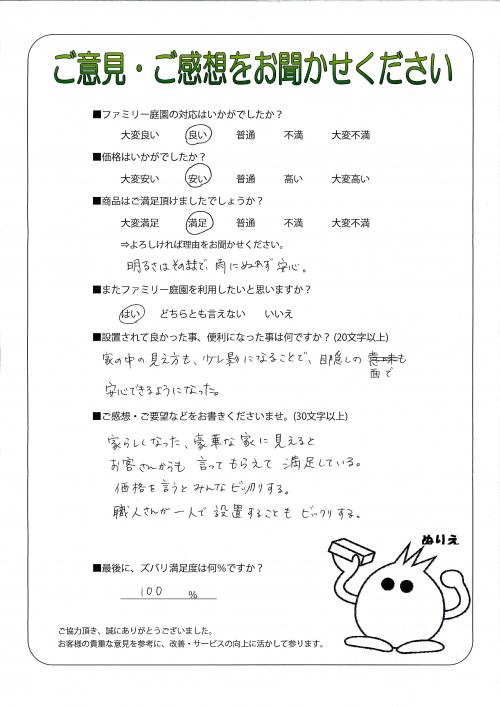 ご意見・ご感想をお聞かせください
■ファミリー庭園の対応はいかがでしたか?
大変良い 良い 普通 不満 大変不満
■価格はいかがでしたか?
大変安い 安い 普通 高い 大変高い
■商品はご満足頂けましたでしょうか?
大変満足 満足 普通 不満 大変不満
⇒よろしければ理由をお聞かせください。
明るさはそのままで、雨にぬれず安心。
■またファミリー庭園を利用したいと思いますか?
はい どちらとも言えない いいえ
■設置されて良かった事、便利になった事は何ですか? (20文字以上)
家の中の見え方も、少し影になることで、目隠しの意味も
面で
安心できるようになった。
■ご感想・ご要望などをお書きくださいませ。(30文字以上)
家らしくなった、豪華な家に見えると
お客さんからも言ってもらえて満足している。
価格を言うとみんなビックリする。
職人さんが一人で設置することもビックリする。
ぬりえ
■最後に、ズバリ満足度は何%ですか?
100 %
ご協力頂き、誠にありがとうございました。
お客様の貴重な意見を参考に、改善・サービスの向上に活かして参ります。